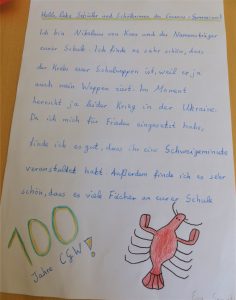 Hallo, liebe Schüler und Schülerinnen des Cusanus-Gymnasiums!
Ich bin Nikolaus von Kues und der Namensträger
eurer Schule. Ich finde es sehr schön, dass
der Krebs euer Schulwappen ist, weil er ja
auch mein Wappen ziert. Im Moment
herrscht ja leider Krieg in der Ukraine.
Da ich mich für Frieden eingesetzt habe,
finde ich es gut, dass ihr eine Schweigeminute
veranstaltet habt. Außerdem finde ich es sehr
schön, dass es viele Fächer an eurer Schule
100
Jahre CGW!